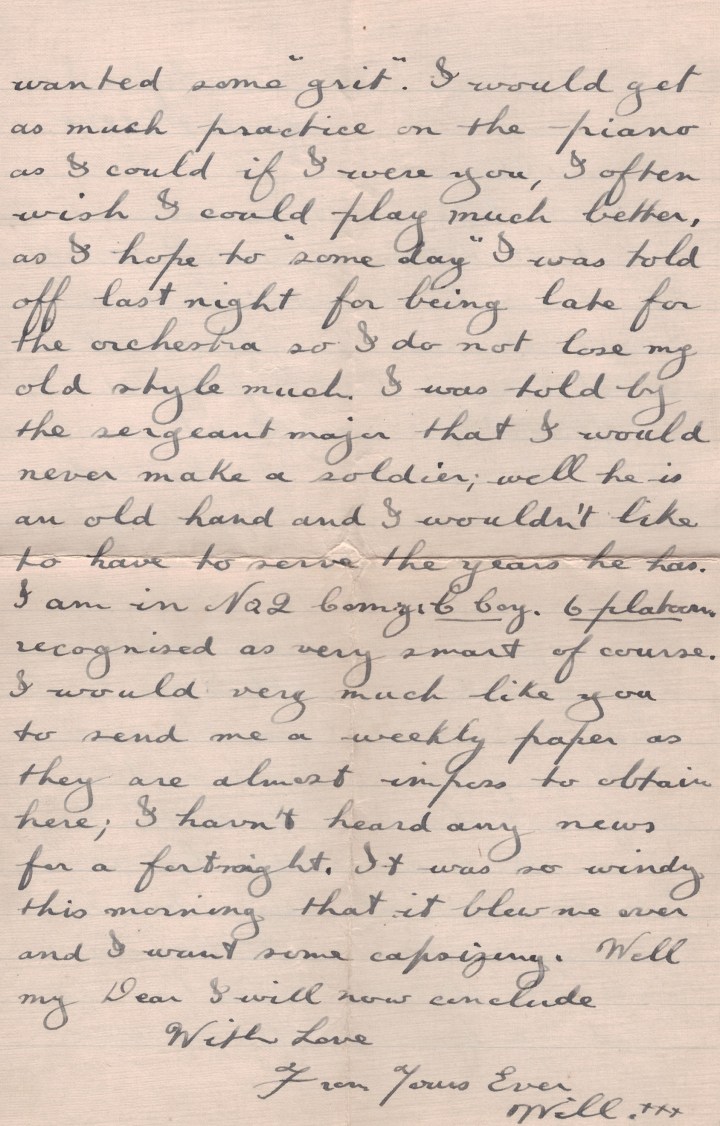 wanted some "grit". I would get
as much practice on the piano
as I could if I were you, I often
wish I could play much better,
as I hope to "some day" I was told
off last night for being late for
the orchestra so I do not lose my
old style much. I was told by
the sergeant major that I would
never make a soldier; well he is
an old hand and I wouldn't like
to have to serve the years he has.
I am in No 2 Comy. 6 Coy. 6 platoon.
recognised as very smart of course.
I would very much like you
to send me a weekly paper as
they are almost imposs to obtain
here; I havn't heard any news
for a fortnight. It was so windy
this morning that it blew me over
and I want some capsizing. Well
my Dear I will now conclude
With Love
From Yours Ever
Will. xxx